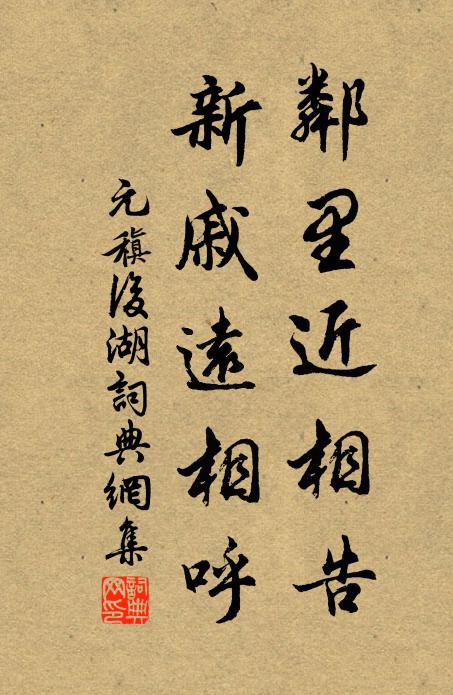 鄰里近相告
新戚遠相呼
元稹後湖詞典網集
詞典網印